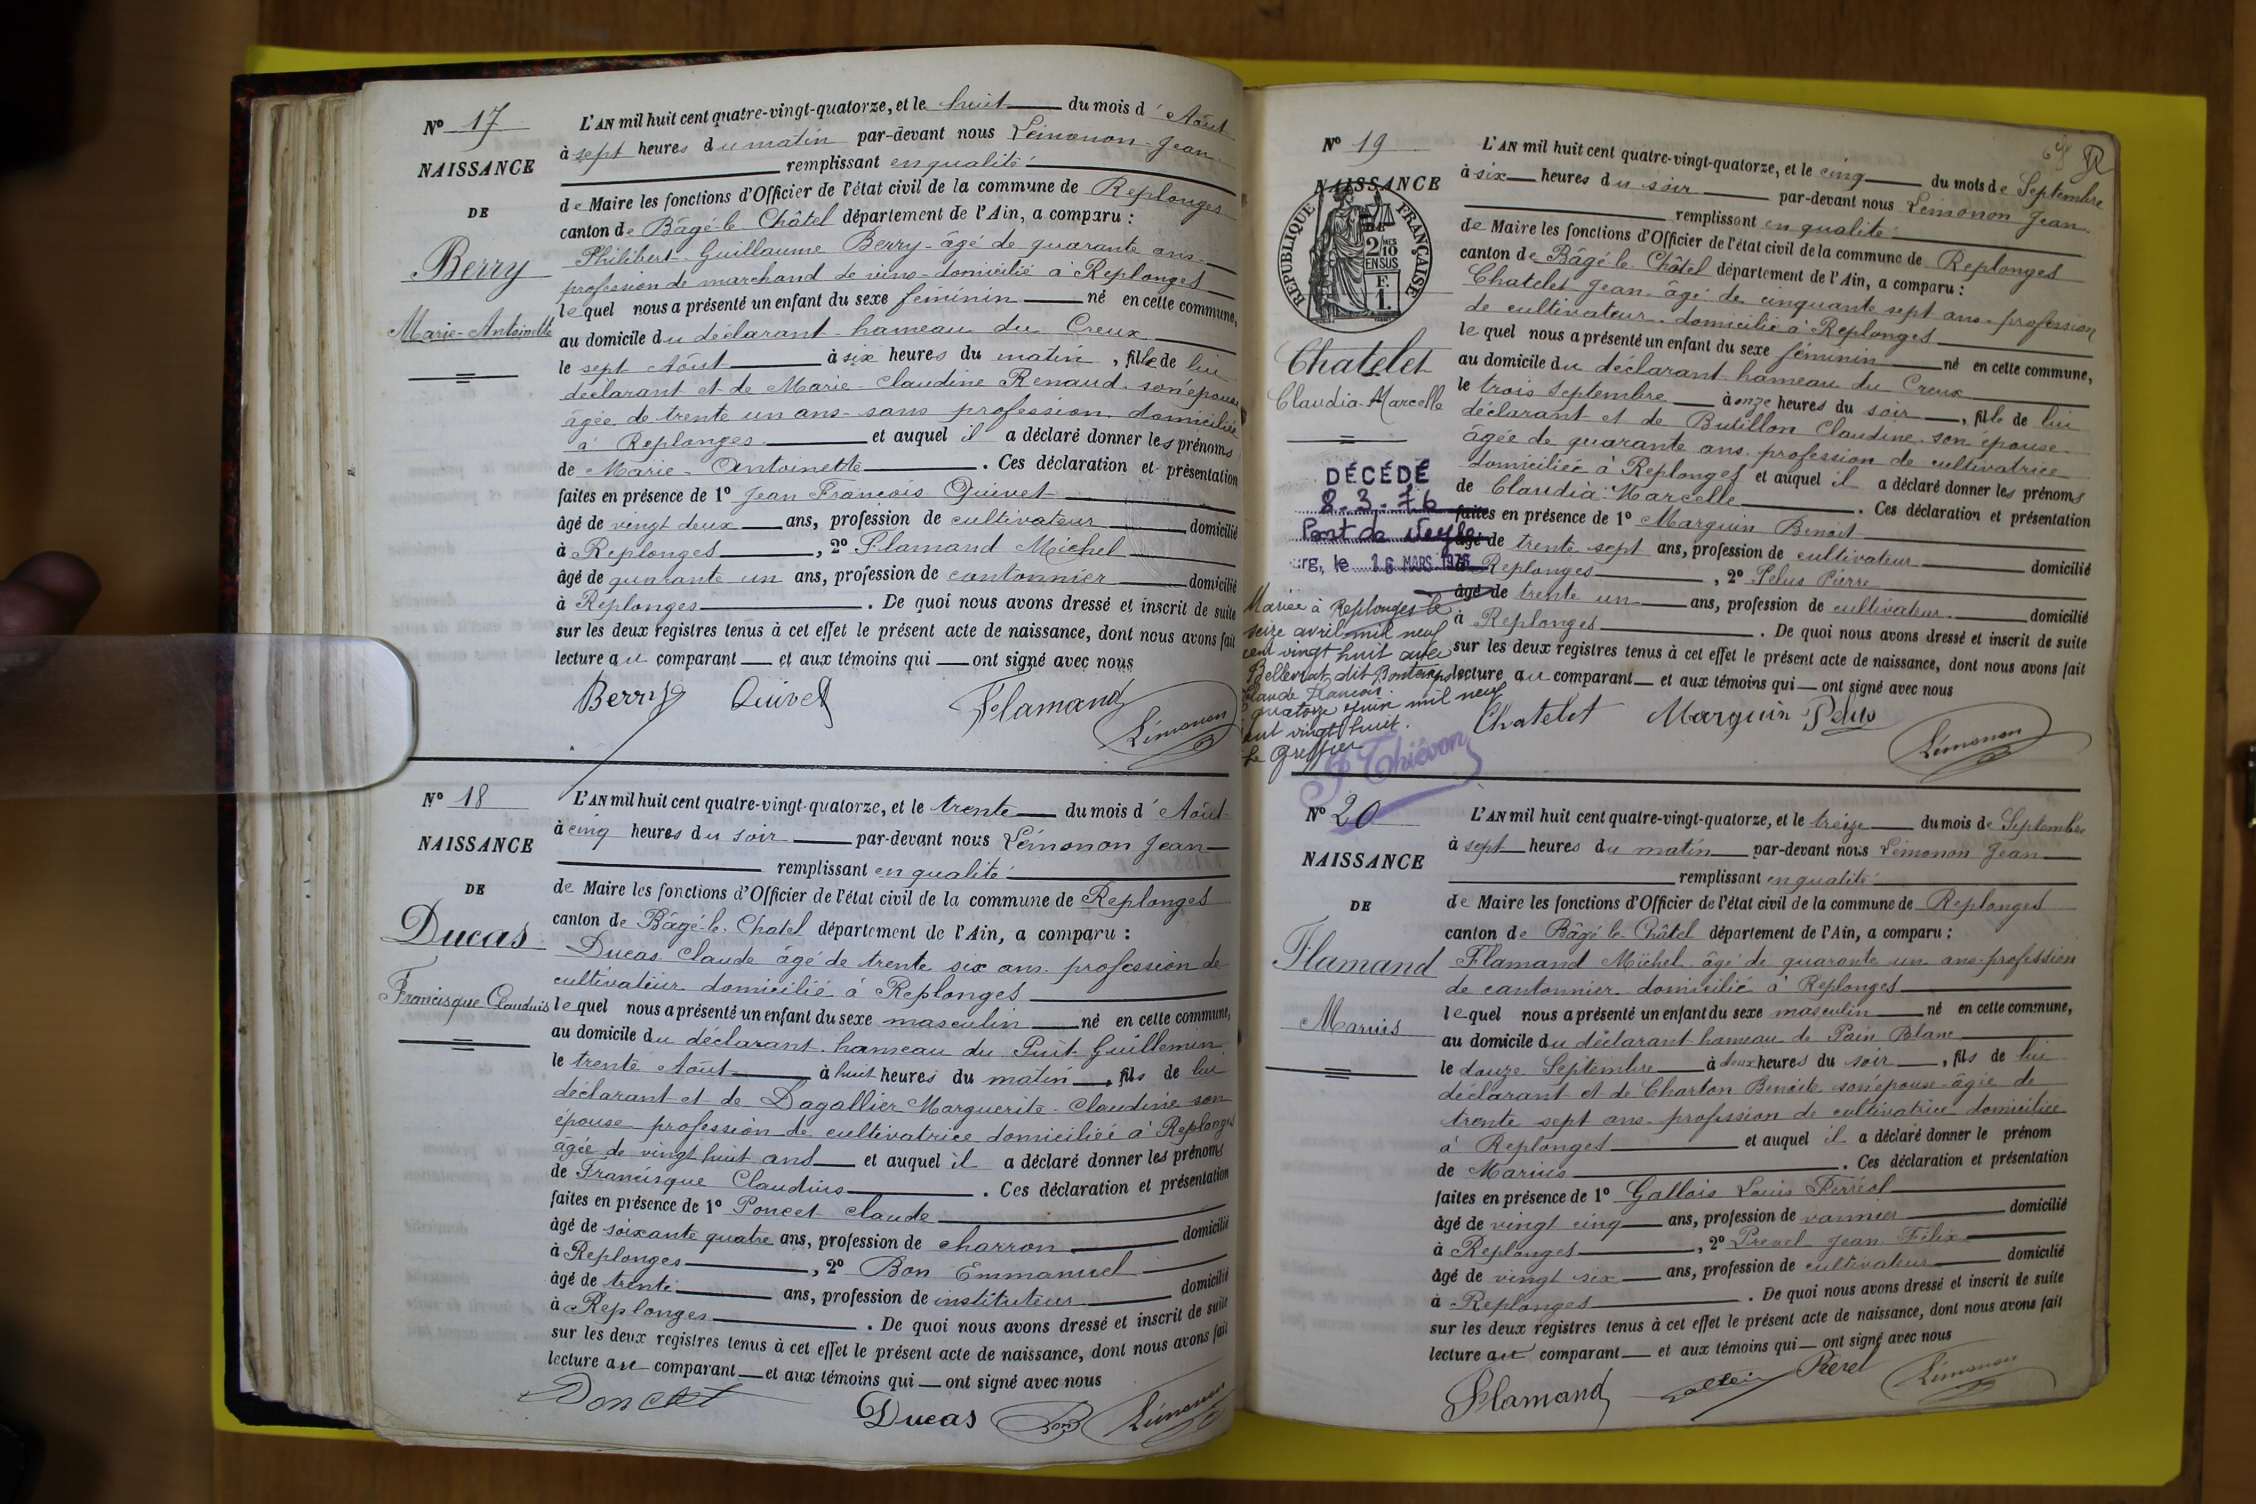 N° 17
NAISSANCE
DE
Berry
Marie-Antoinette
L'AN mil huit cent quatre-vingt-quatorze, et le huit du mois d'Août
à sept heures du matin par-devant nous Lémonon Jean
remplissant en qualité
de Maire les fonctions d'Officier de l'état civil de la commune de Replonges
canton de Bâgé-le-Châtel département de l'Ain, a comparu :
Philibert-Guillaume Berry âgé de quarante ans
profession de marchand de vins domicilié à Replonges
lequel nous a présenté un enfant du sexe féminin né en cette commune,
au domicile du déclarant hameau du Creux
le sept Août à six heures du matin, fille de lui
déclarant et de Marie-Claudine Renaud son épouse
âgée de trente un ans sans profession domiciliée
à Replonges et auquel il a déclaré donner les prénoms
de Marie-Antoinette. Ces déclaration et présentation
faites en présence de 1° Jean François Quivet
âgé de vingt deux ans, profession de cultivateur domicilié
à Replonges, 2° Flamand Michel
âgé de quarante un ans, profession de cantonnier domicilié
à Replonges. De quoi nous avons dressé et inscrit de suite
sur les deux registres tenus à cet effet le présent acte de naissance, dont nous avons fait
lecture au comparant et aux témoins qui ont signé avec nous
Berry Quivet Flamand Lémonon
N° 18
NAISSANCE
DE
Ducas
Francisque Claudius
L'AN mil huit cent quatre-vingt-quatorze, et le trente du mois d'Août
à cinq heures du soir par-devant nous Lémonon Jean
remplissant en qualité
de Maire les fonctions d'Officier de l'état civil de la commune de Replonges
canton de Bâgé-le-Chatel département de l'Ain, a comparu :
Ducas Claude âgé de trente six ans profession de
cultivateur domicilié à Replonges
lequel nous a présenté un enfant du sexe masculin né en cette commune,
au domicile du déclarant hameau du Puit-Guillemin
le trente Août à huit heures du matin, fils de lui
déclarant et de Dagallier Marguerite-Claudine son
épouse profession de cultivatrice domiciliée à Replonges
âgée de vingt huit ans et auquel il a déclaré donner les prénoms
de Francisque Claudius. Ces déclaration et présentation
faites en présence de 1° Poncet Claude
âgé de soixante quatre ans, profession de charron domicilié
à Replonges, 2° Bon Emmanuel
âgé de trente ans, profession de instituteur domicilié
à Replonges. De quoi nous avons dressé et inscrit de suite
sur les deux registres tenus à cet effet le présent acte de naissance, dont nous avons fait
lecture au comparant et aux témoins qui ont signé avec nous
Poncet Ducas Bon Lémonon
N° 19
NAISSANCE
RÉPUBLIQUE FRANÇAISE
2/10 EN SUS
F. 1.
Chatelet
Claudia-Marcelle
DÉCÉDÉ
8.3.76
Pont de Veyle
rg, le 16 MARS 1976
Mariée à Replonges le
seize avril mil neuf
cent vingt huit avec
Bellevrat, dit Bontemps
Claude François.
quatorze juin mil neuf
cent vingt huit.
Le Greffier
Thiévon
L'AN mil huit cent quatre-vingt-quatorze, et le cinq du mois de Septembre
à six heures du soir par-devant nous Lémonon Jean
remplissant en qualité
de Maire les fonctions d'Officier de l'état civil de la commune de Replonges
canton de Bâgé-le-Châtel département de l'Ain, a comparu :
Chatelet Jean âgé de cinquante sept ans profession
de cultivateur domicilié à Replonges
lequel nous a présenté un enfant du sexe féminin né en cette commune,
au domicile du déclarant hameau du Creux
le trois Septembre à onze heures du soir, fille de lui
déclarant et de Butillon Claudine son épouse
âgée de quarante ans profession de cultivatrice
domiciliée à Replonges et auquel il a déclaré donner les prénoms
de Claudia-Marcelle. Ces déclaration et présentation
faites en présence de 1° Marguin Benoit
âgé de trente sept ans, profession de cultivateur domicilié
Replonges, 2° Pelus Pierre
âgé de trente un ans, profession de cultivateur domicilié
à Replonges. De quoi nous avons dressé et inscrit de suite
sur les deux registres tenus à cet effet le présent acte de naissance, dont nous avons fait
lecture au comparant et aux témoins qui ont signé avec nous
Chatelet Marguin Pelus Lémonon
N° 20
NAISSANCE
DE
Flamand
Marius
L'AN mil huit cent quatre-vingt-quatorze, et le treize du mois de Septembre
à sept heures du matin par-devant nous Lémonon Jean
remplissant en qualité
de Maire les fonctions d'Officier de l'état civil de la commune de Replonges
canton de Bâgé-le-Châtel département de l'Ain, a comparu :
Flamand Michel âgé de quarante un ans profession
de cantonnier domicilié à Replonges
lequel nous a présenté un enfant du sexe masculin né en cette commune,
au domicile du déclarant hameau de Pain Blanc
le douze Septembre à deux heures du soir, fils de lui
déclarant et de Charton Benoite son épouse âgée de
trente sept ans profession de cultivatrice domiciliée
à Replonges et auquel il a déclaré donner le prénom
de Marius. Ces déclaration et présentation
faites en présence de 1° Gallois Louis Ferréol
âgé de vingt cinq ans, profession de vannier domicilié
à Replonges, 2° Prevel Jean Félix
âgé de vingt six ans, profession de cultivateur domicilié
à Replonges. De quoi nous avons dressé et inscrit de suite
sur les deux registres tenus à cet effet le présent acte de naissance, dont nous avons fait
lecture au comparant et aux témoins qui ont signé avec nous
Flamand Lémonon